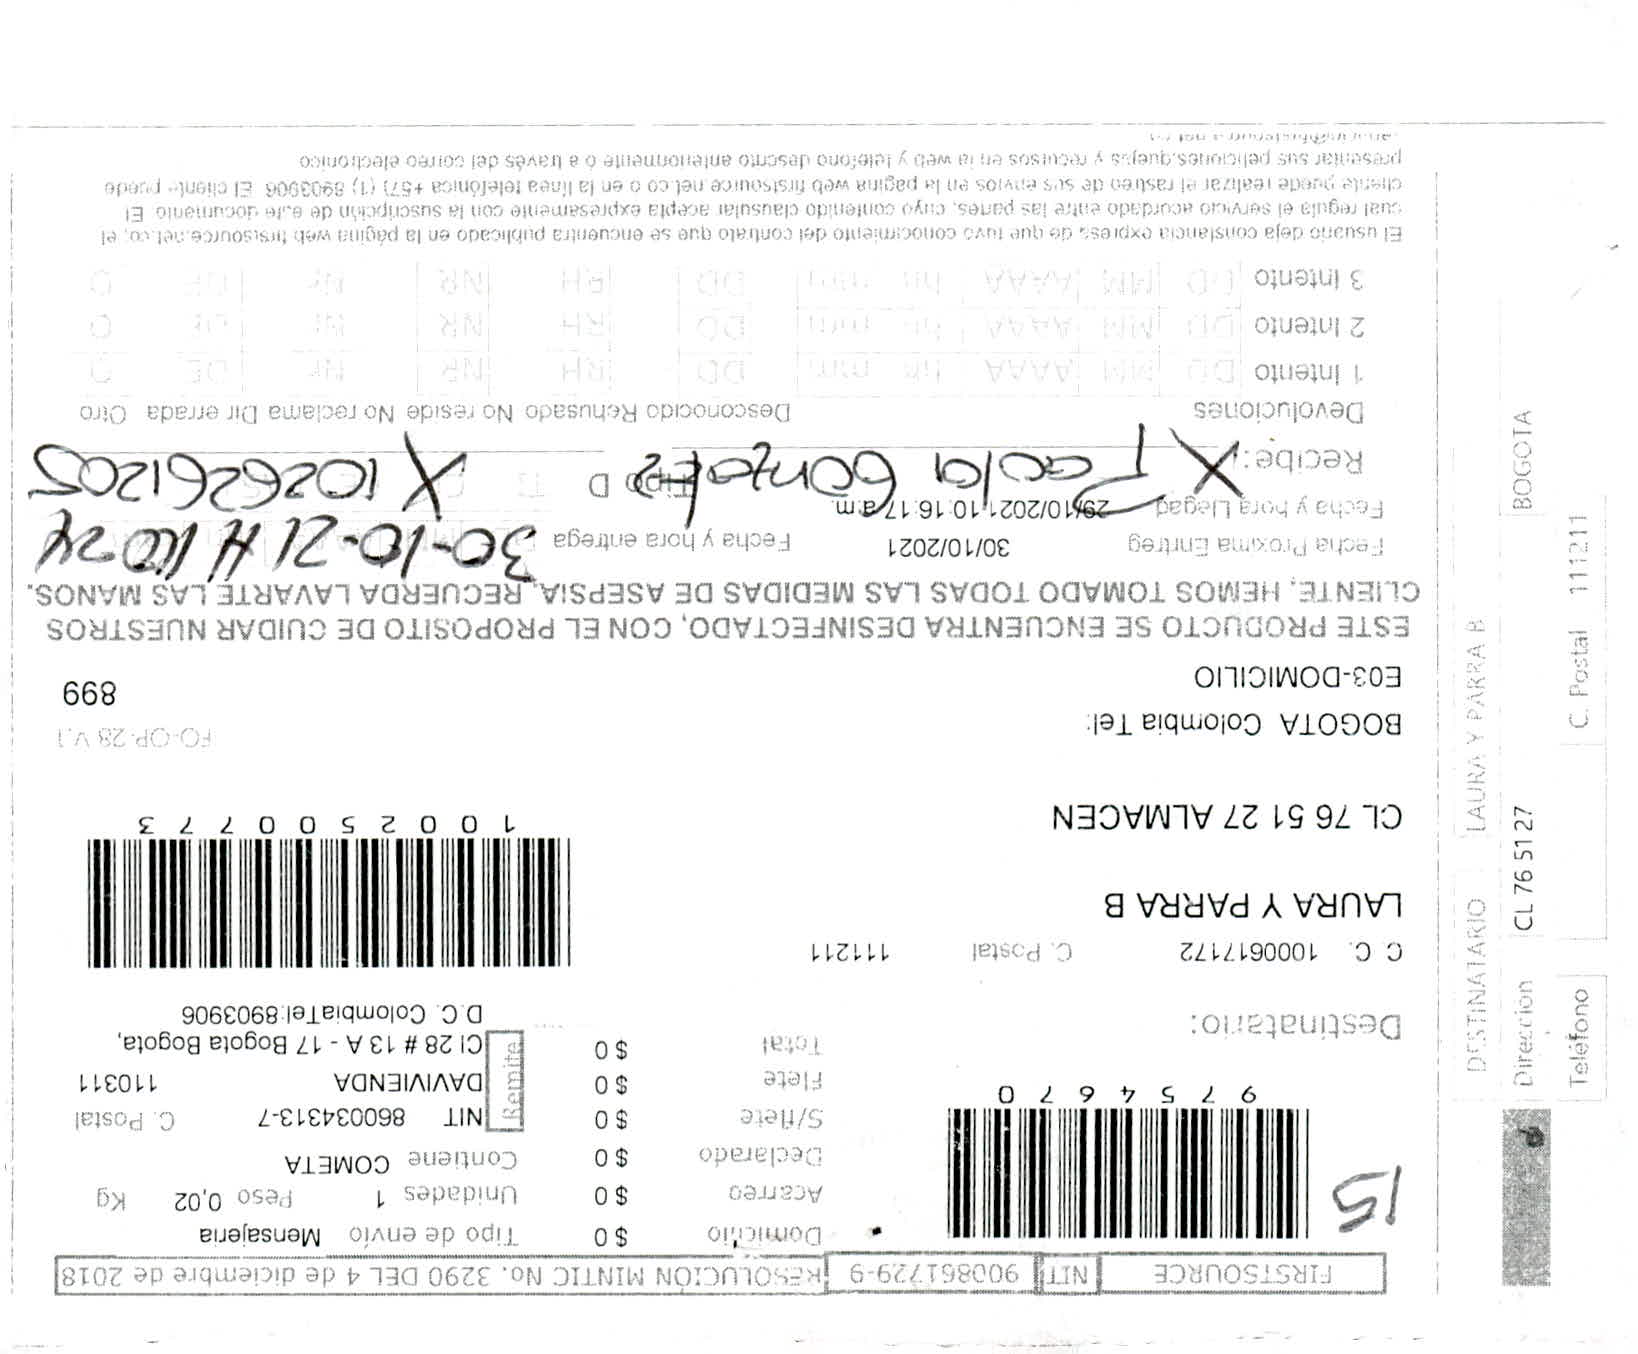 FIRSTSOURCE NIT 900861729-9 RESOLUCIÓN MINTIC No. 3290 DEL 4 de diciembre de 2018
15
9 7 5 4 6 7 0
Domicilio $ 0
Acarreo $ 0
Declarado $ 0
S/flete $ 0
Flete $ 0
Total $ 0
Tipo de envío Mensajeria
Unidades 1 Peso 0,02 Kg
Contiene COMETA
Remite
NIT 860034313-7 C. Postal
DAVIVIENDA 110311
Cl 28 # 13 A - 17 Bogota Bogota,
D.C. ColombiaTel:8903906
Destinatario:
C C. 1000617172 C. Postal 111211
LAURA Y PARRA B
CL 76 51 27 ALMACEN
1 0 0 2 5 0 0 7 7 3
BOGOTA Colombia Tel:
E03-DOMICILIO
FO-OP-28 V.1
899
ESTE PRODUCTO SE ENCUENTRA DESINFECTADO, CON EL PROPOSITO DE CUIDAR NUESTROS
CLIENTE, HEMOS TOMADO TODAS LAS MEDIDAS DE ASEPSIA, RECUERDA LAVARTE LAS MANOS.
Fecha Proxima Enrtreg 30/10/2021 Fecha y hora entrega 30-10-21 H
Fecha y hora Llegad 29/10/2021 10:16:17 a.m.
Recibe: X Paola Gonzalez Tipo D X 1026261205
Devoluciones Desconocido Rehusado No reside No reclama Dir errada Otro
1 Intento DD MM AAAA hh mm DD RH NR Nr DE O
2 Intento DD MM AAAA hh mm DD RH NR Nr DE O
3 Intento DD MM AAAA hh mm DD RH NR Nr DE O
El usuario deja constancia expresa de que tuvo conocimiento del contrato que se encuentra publicado en la página web firstsource.net.co, el
cual regula el servicio acordado entre las partes, cuyo contenido clausular acepta expresamente con la suscripción de este documento El
cliente puede realizar el rastreo de sus envios en la pagina web firstsource.net.co o en la línea telefónica +57) (1) 8903906 El cliente puede
presentar sus peticiones,quejas y recursos en la web y telefono descrito anteriormente ó a través del correo electronico
DESTINATARIO LAURA Y PARRA B
Dirección CL 76 51 27 BOGOTA
Teléfono C. Postal 111211